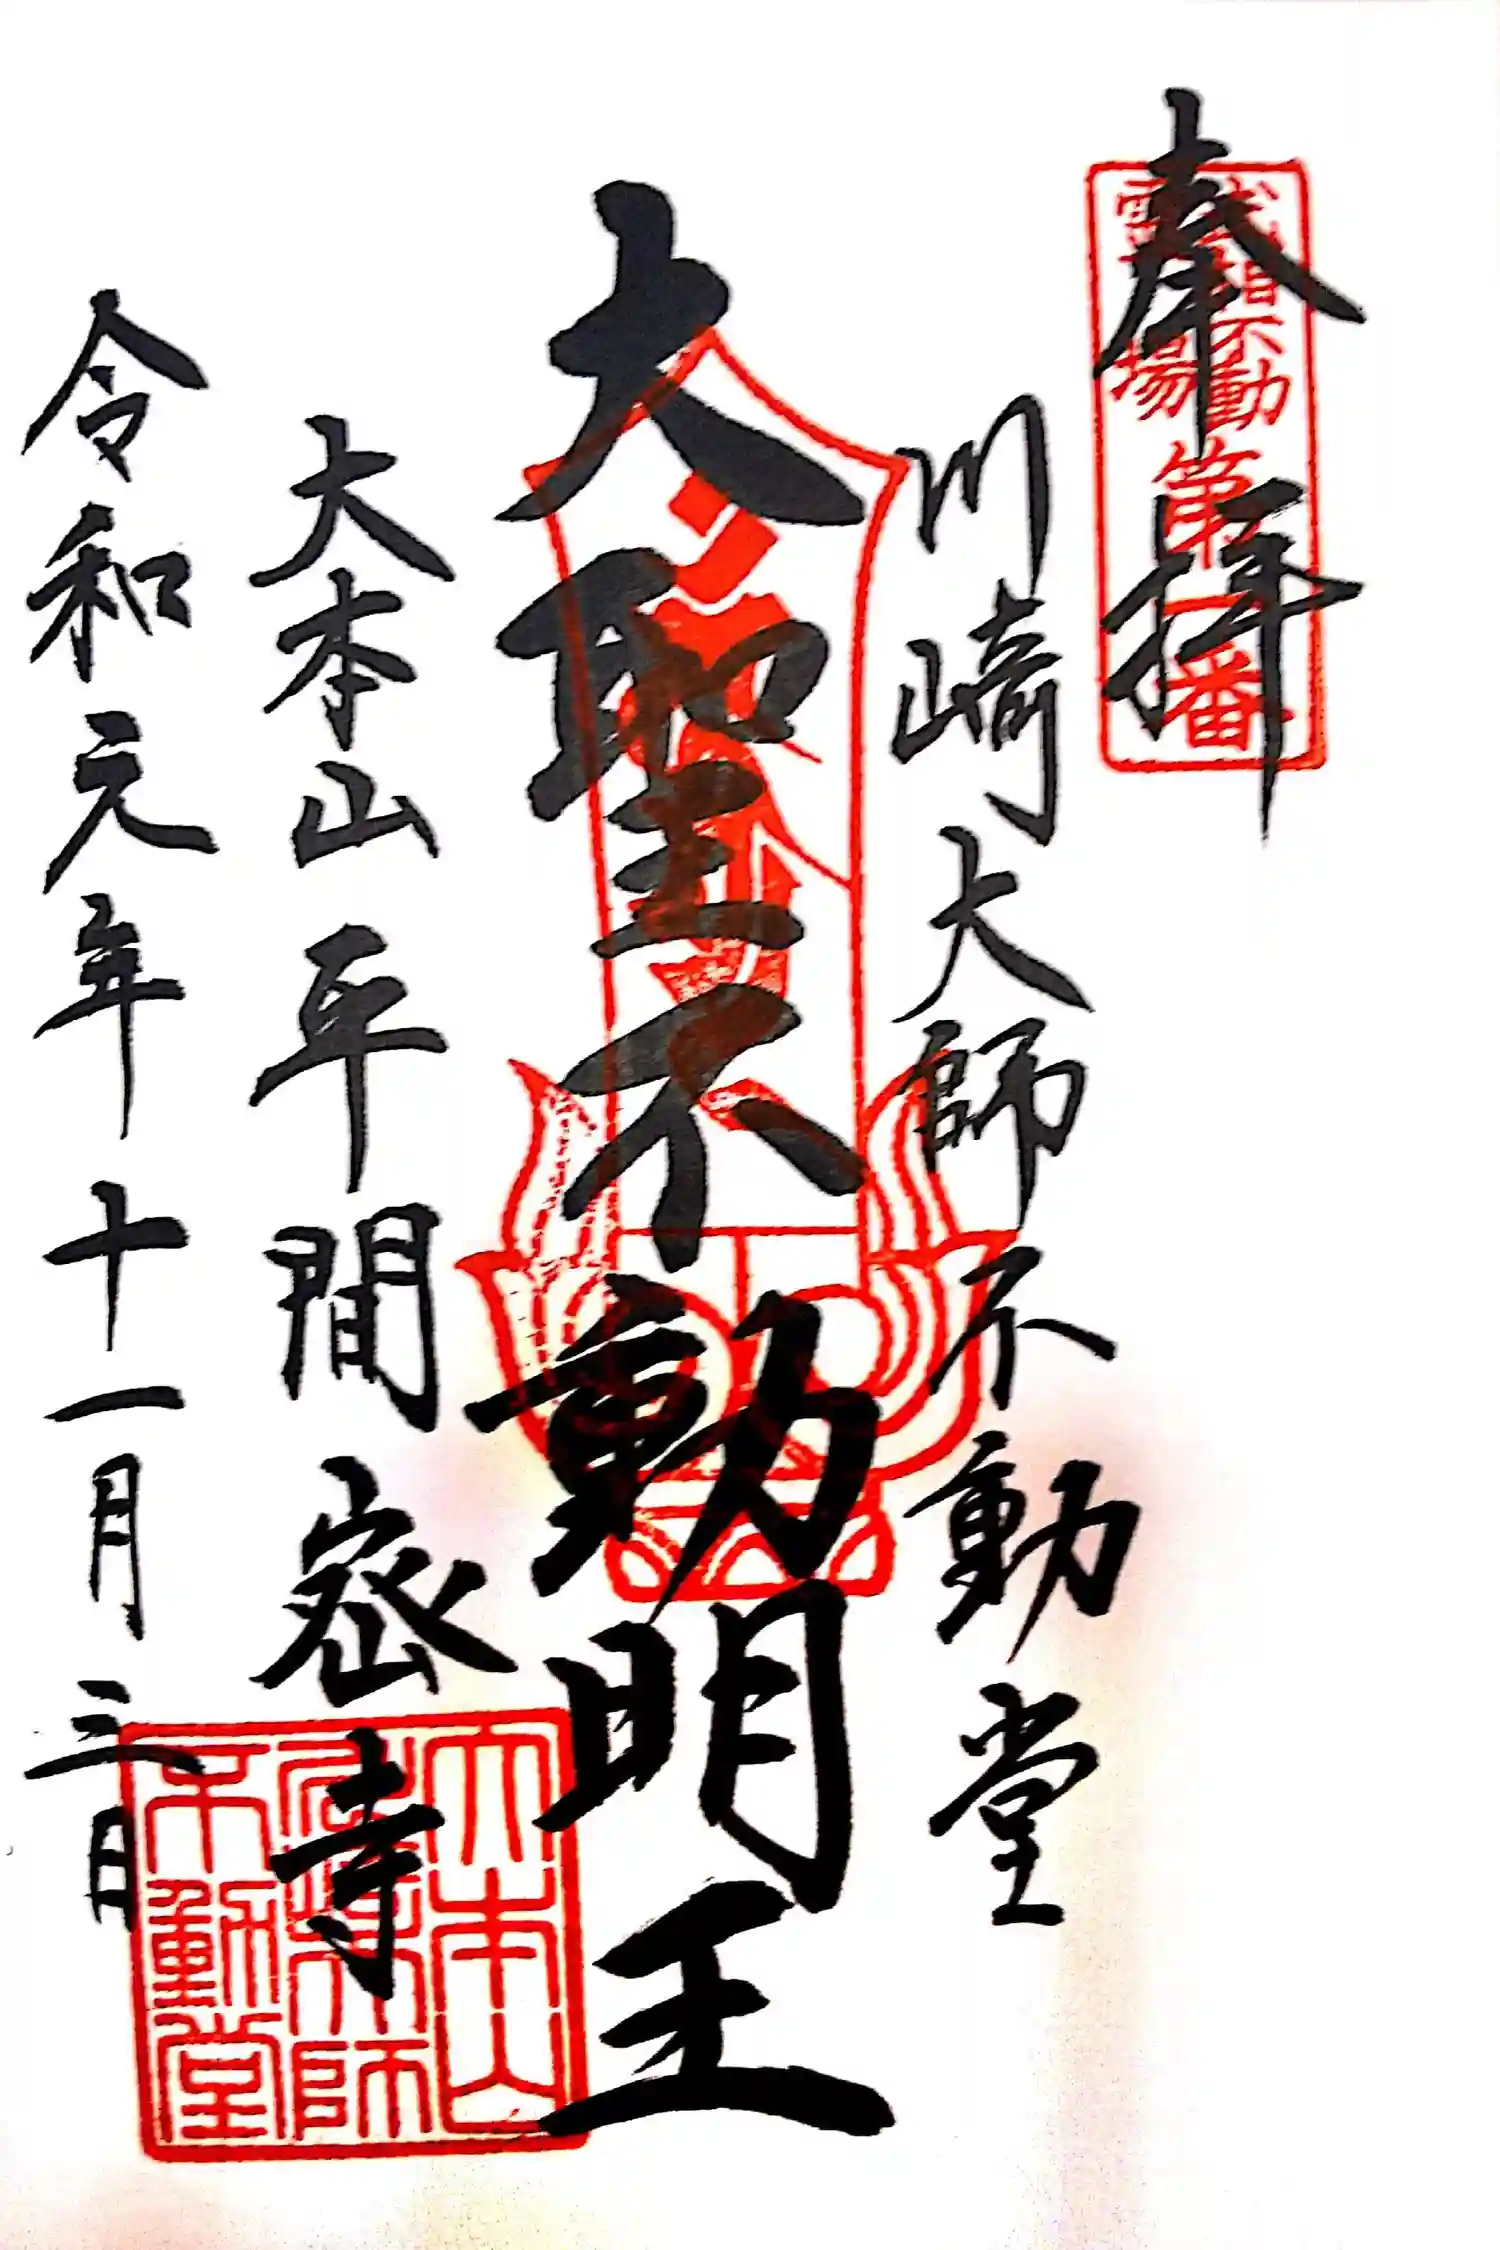 奉拝
武相不動
霊場
第一番
川崎大師不動堂
大聖不動明王
大本山平間㝫寺
令和元年十一月三日
大本山
川崎大師
不動堂